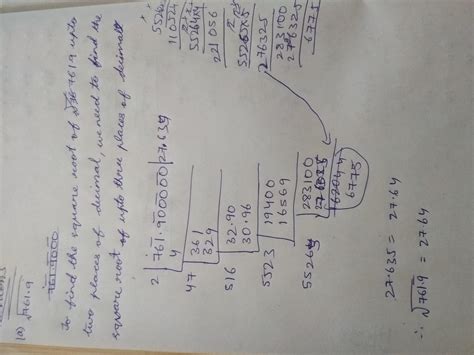 (a) √761.9
761.9000
To find the square root of √ 7619 upto
two places of decimal, we need to find the
square root of upto three places of decimals
2 | 761.900000 | 27.635
4
47 | 361
329
516 | 32.90
30.96
5523 | 19400
16569
55265 | 283100
6775
27.635 = 27.64
∴ √761.9 = 27.64
110524
221056
55265×5
276325
283100
276325
6775